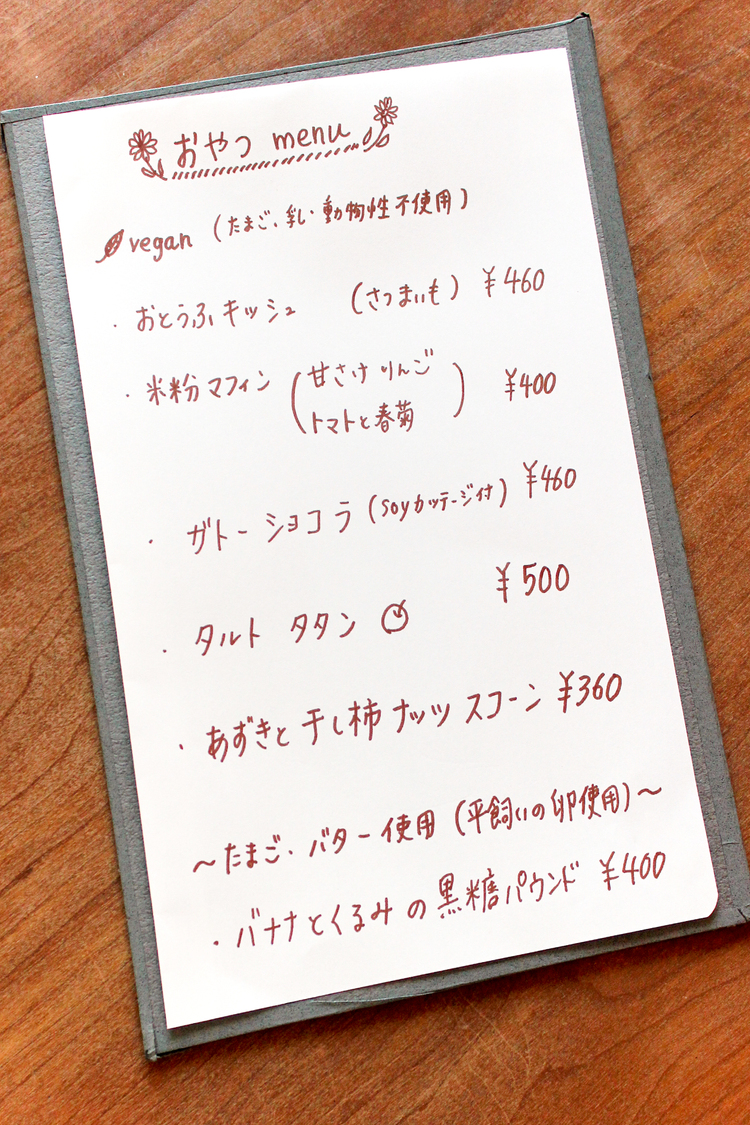 おやつ menu
vegan (たまご、乳・動物性不使用)
・おとうふキッシュ (さつまいも) ¥460
・米粉マフィン (甘さけりんご
トマトと春菊) ¥400
・ガトーショコラ (soyカッテージ付) ¥460
・タルト タタン ¥500
・あずきと干し柿ナッツスコーン ¥360
〜たまご・バター使用 (平飼いの卵使用)〜
・バナナとくるみの黒糖パウンド ¥400